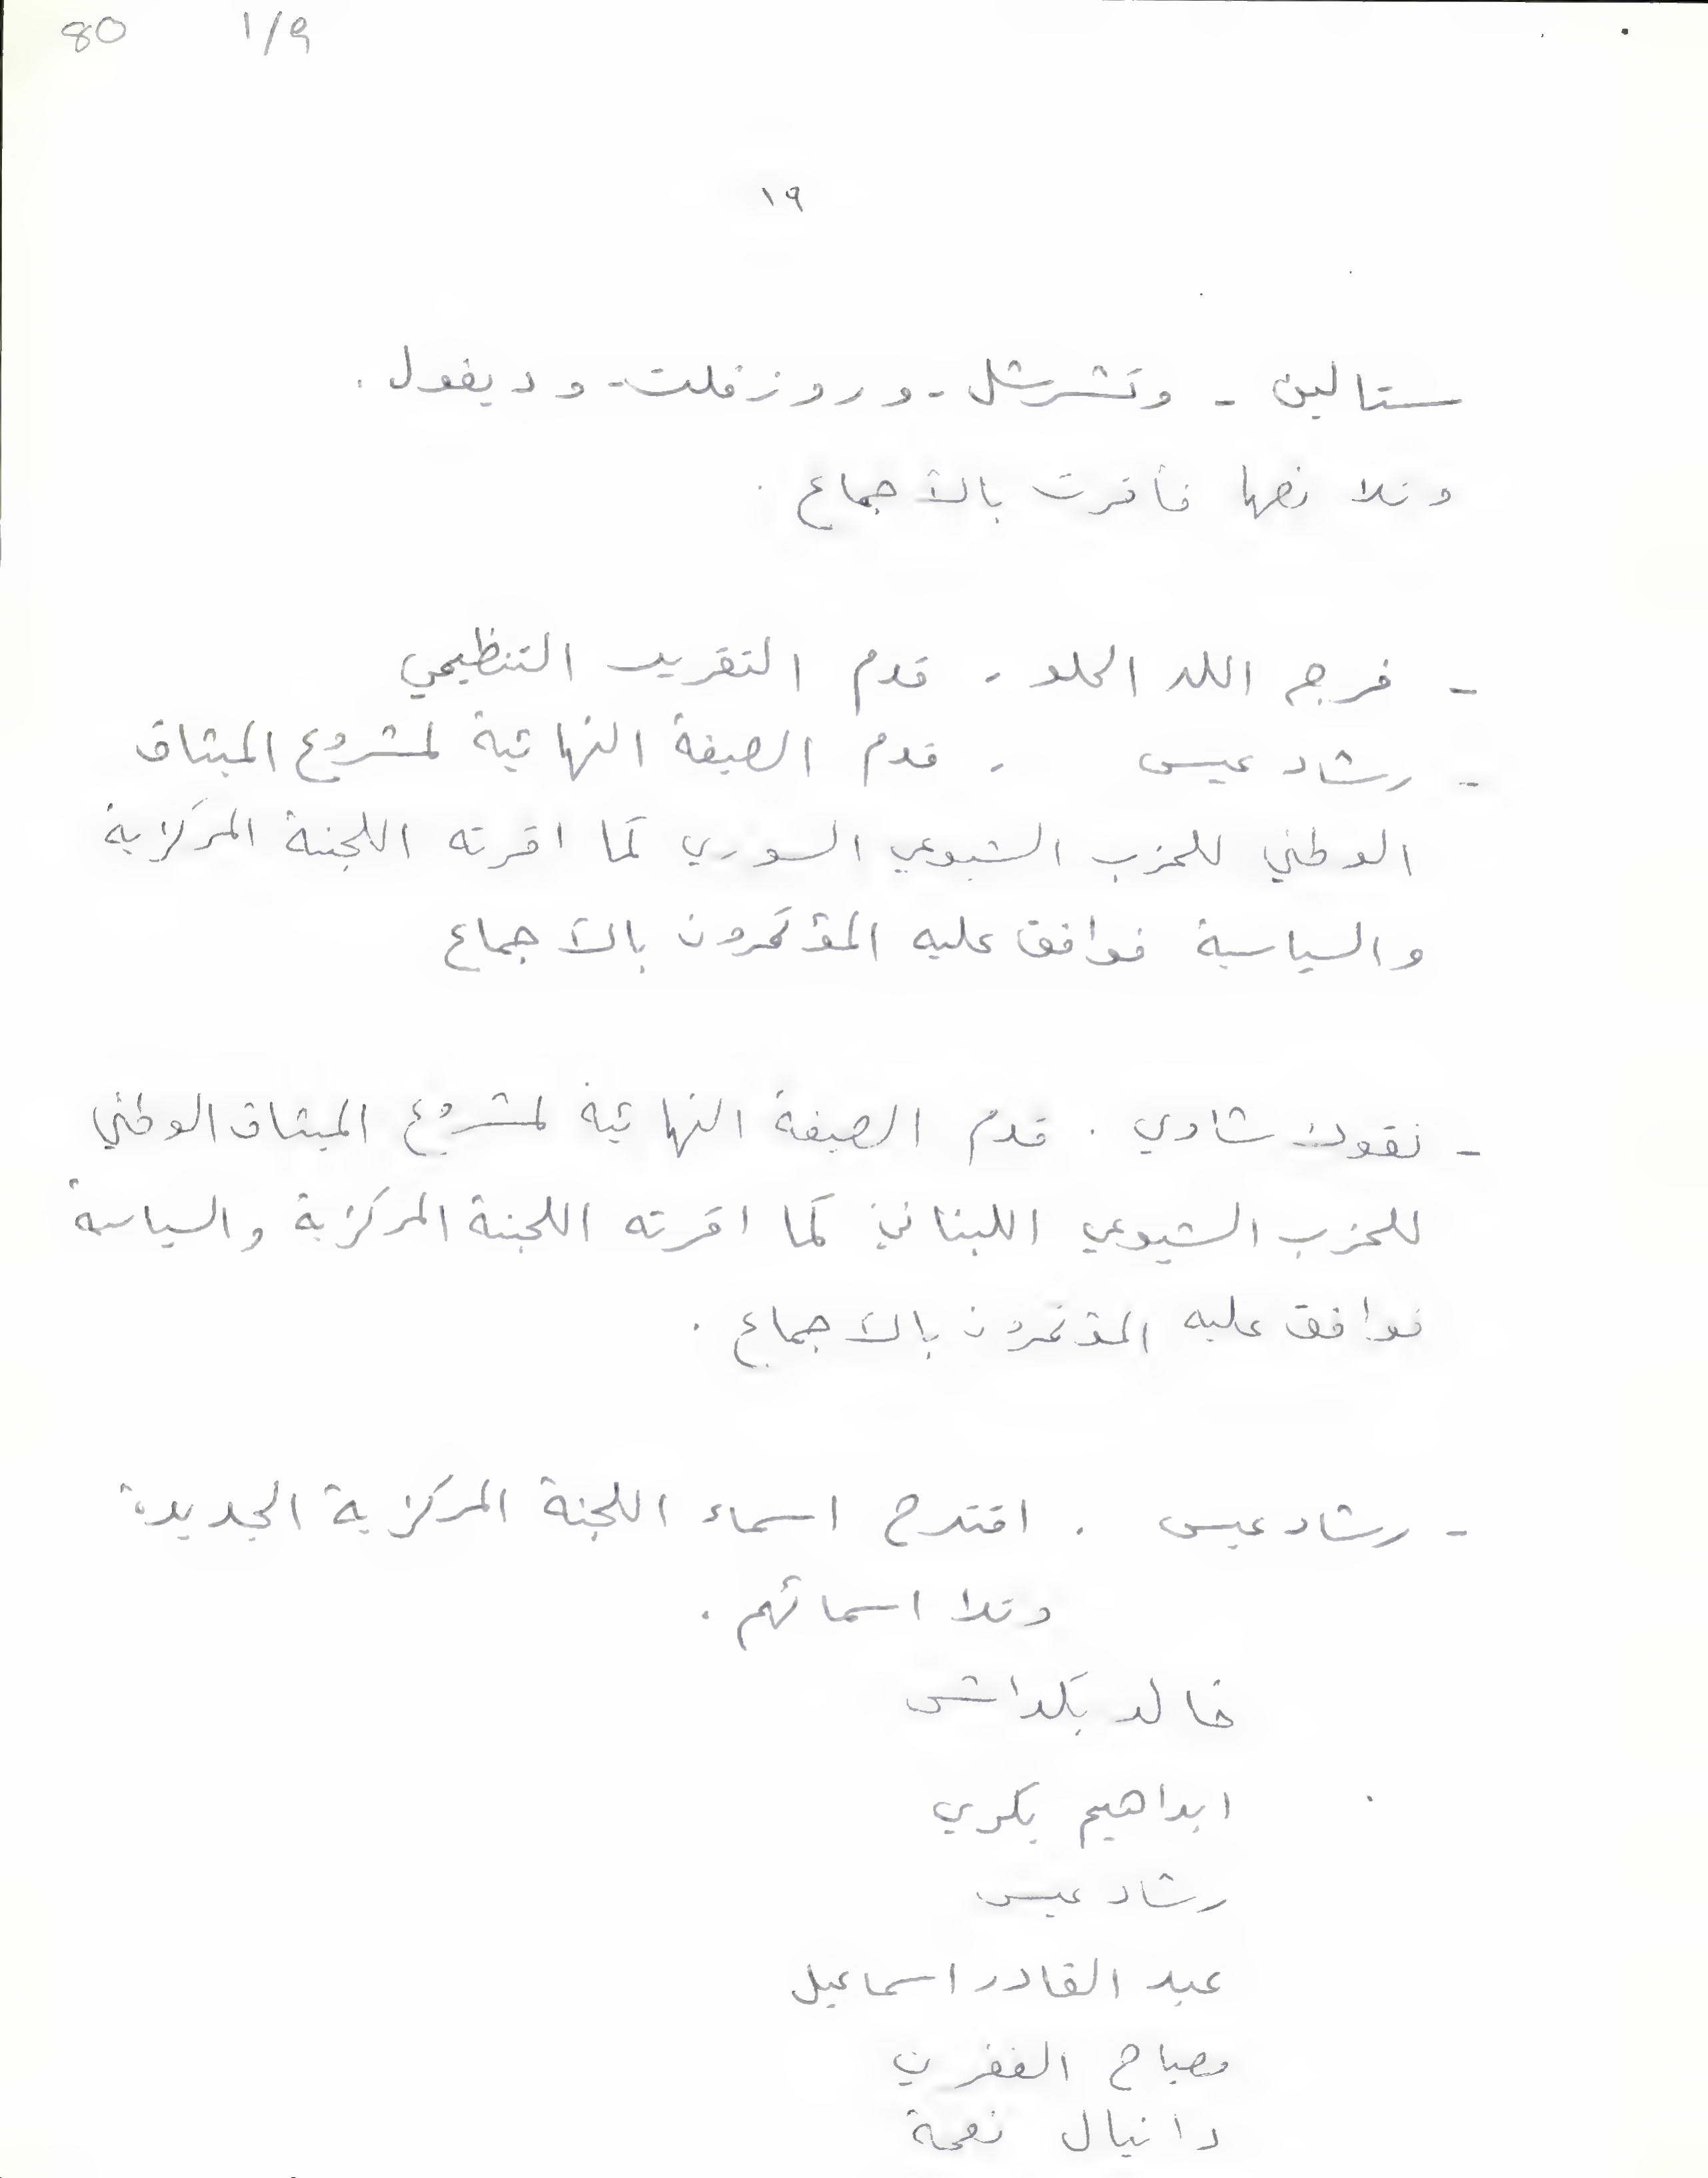 80 1/9
١٩
ستالين - وتشرشل - وروزفلت - وديغول .
وتلا نصها فأقرت بالاجماع .
- فرج الله الحلو . قدم التقرير التنظيمي
- رشاد عيسى . قدم الصيغة النهائية لمشروع الميثاق
الوطني للحزب الشيوعي السوري كما اقرته اللجنة المركزية
والسياسية فوافق عليه المؤتمرون بالاجماع
- نقولا شاوي . قدم الصيغة النهائية لمشروع الميثاق الوطني
للحزب الشيوعي اللبناني كما اقرته اللجنة المركزية والسياسية
فوافق عليه المؤتمرون بالاجماع .
- رشاد عيسى . اقترح اسماء اللجنة المركزية الجديدة
وتلا اسمائهم .
خالد بكداش
ابراهيم بكري
رشاد عيسى
عبد القادر اسماعيل
مصباح الغفري
دانيال نعمة